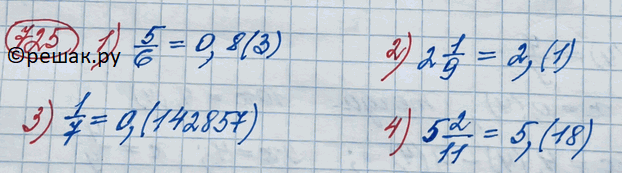 725 1) 5/6 = 0,8(3) 2) 2 1/9 = 2,(1)
©решак.ру
3) 1/7 = 0,(142857) 4) 5 2/11 = 5,(18)